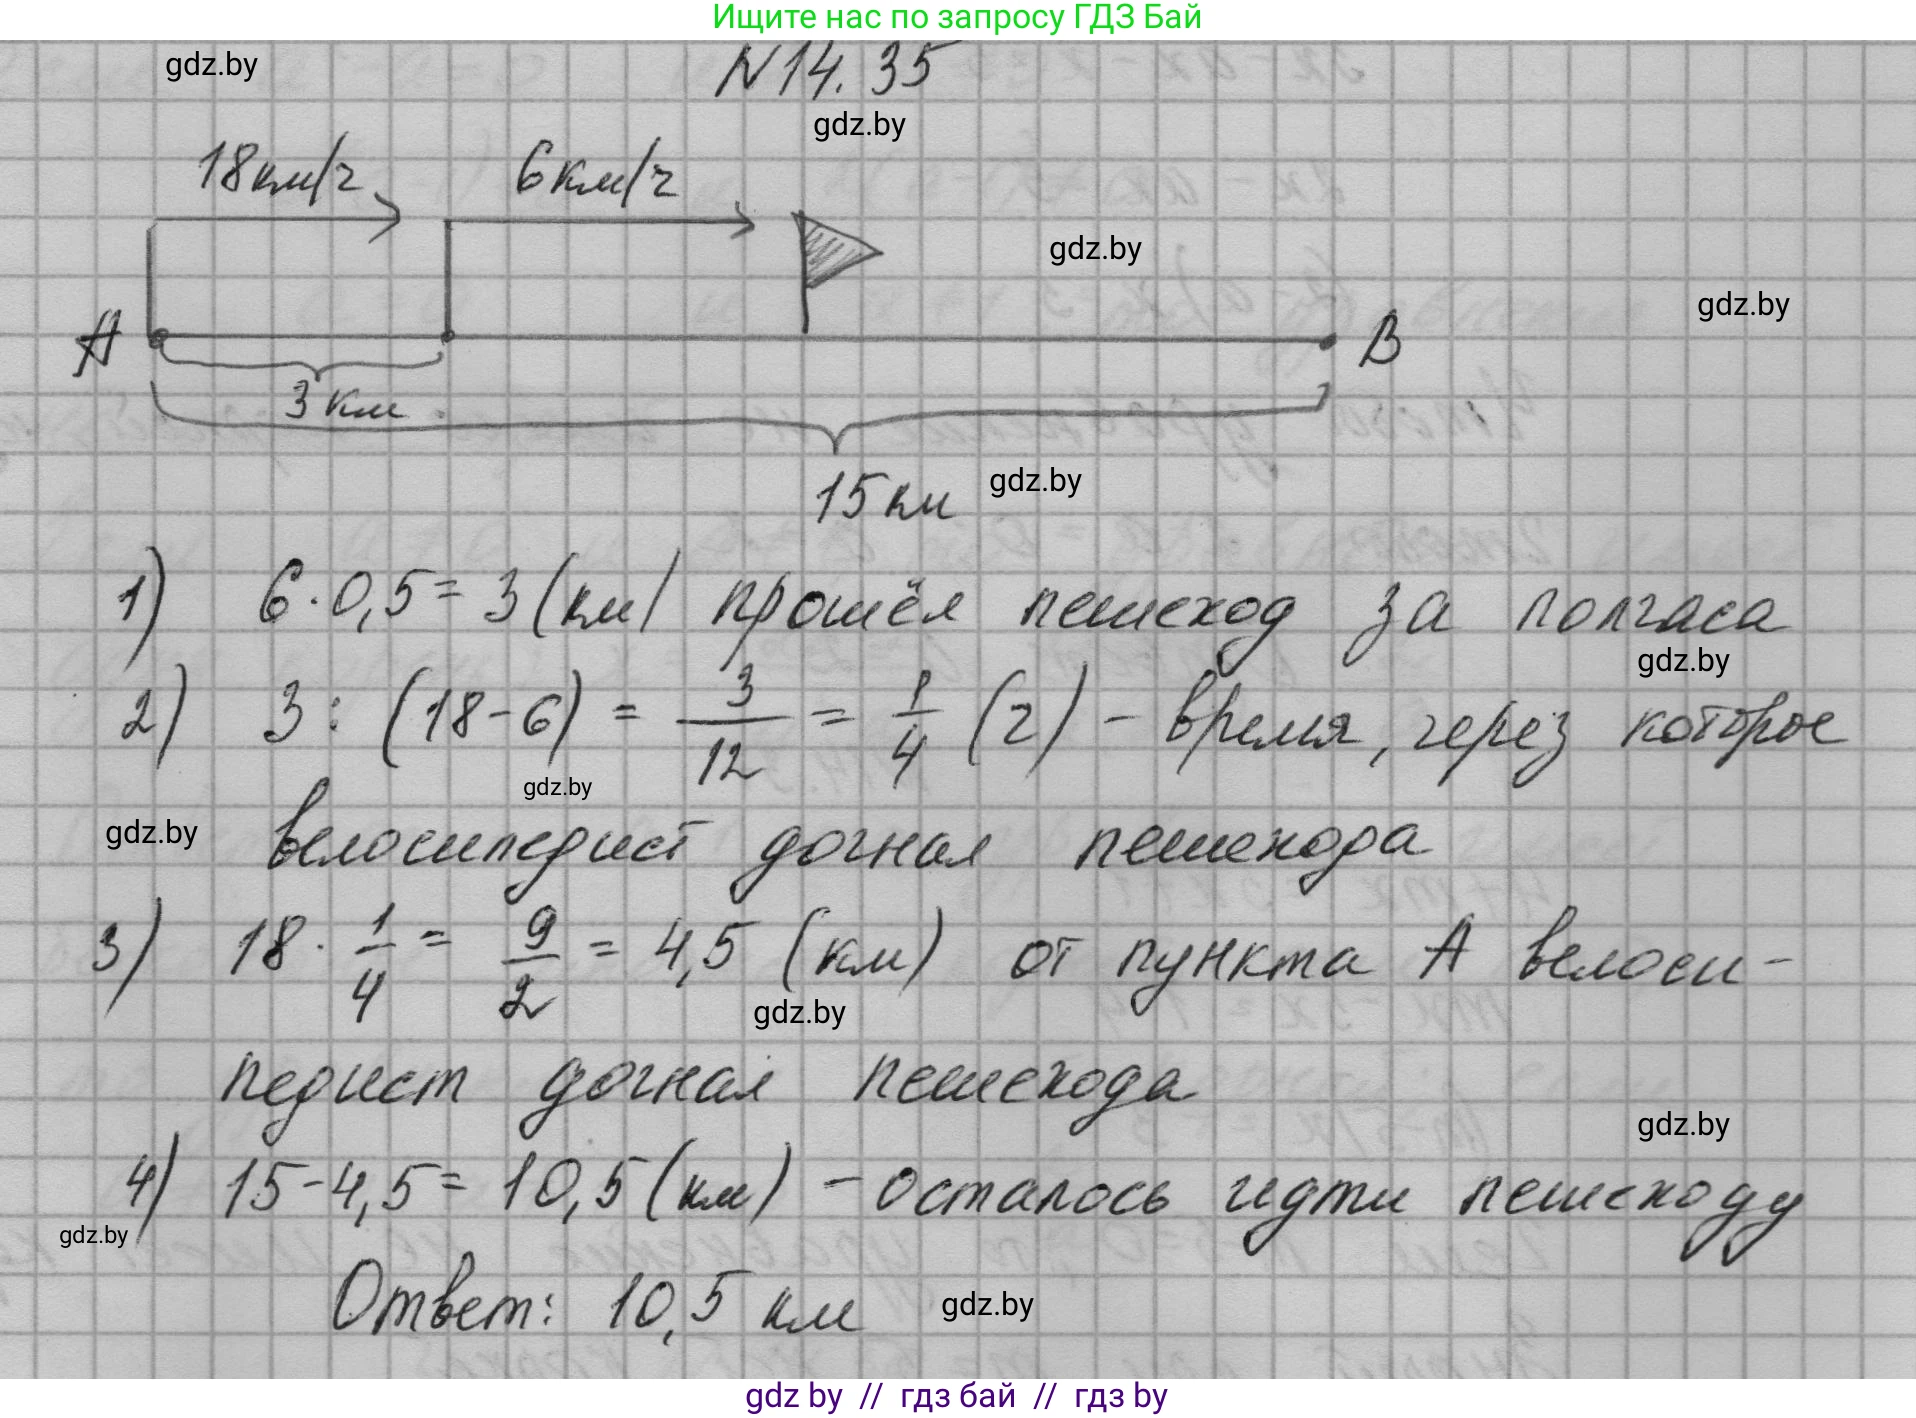 Ищите нас по запросу ГДЗ Бай
gdz.by
N14.35
gdz.by
18км/ч 6км/ч
gdz.by
gdz.by
А В
3 км
15 км gdz.by
1) 6·0,5=3 (км) прошёл пешеход за полчаса
gdz.by
2) 3:(18-6) = 3/12 = 1/4 (ч) - время, через которое
gdz.by
gdz.by велосипедист догнал пешехода
3) 18·1/4 = 9/2 = 4,5 (км) от пункта А велоси-
gdz.by
педист догнал пешехода
gdz.by
4) 15-4,5=10,5(км) - осталось идти пешеходу
gdz.by
Ответ: 10,5 км gdz.by
gdz by // гдз бай // гдз by